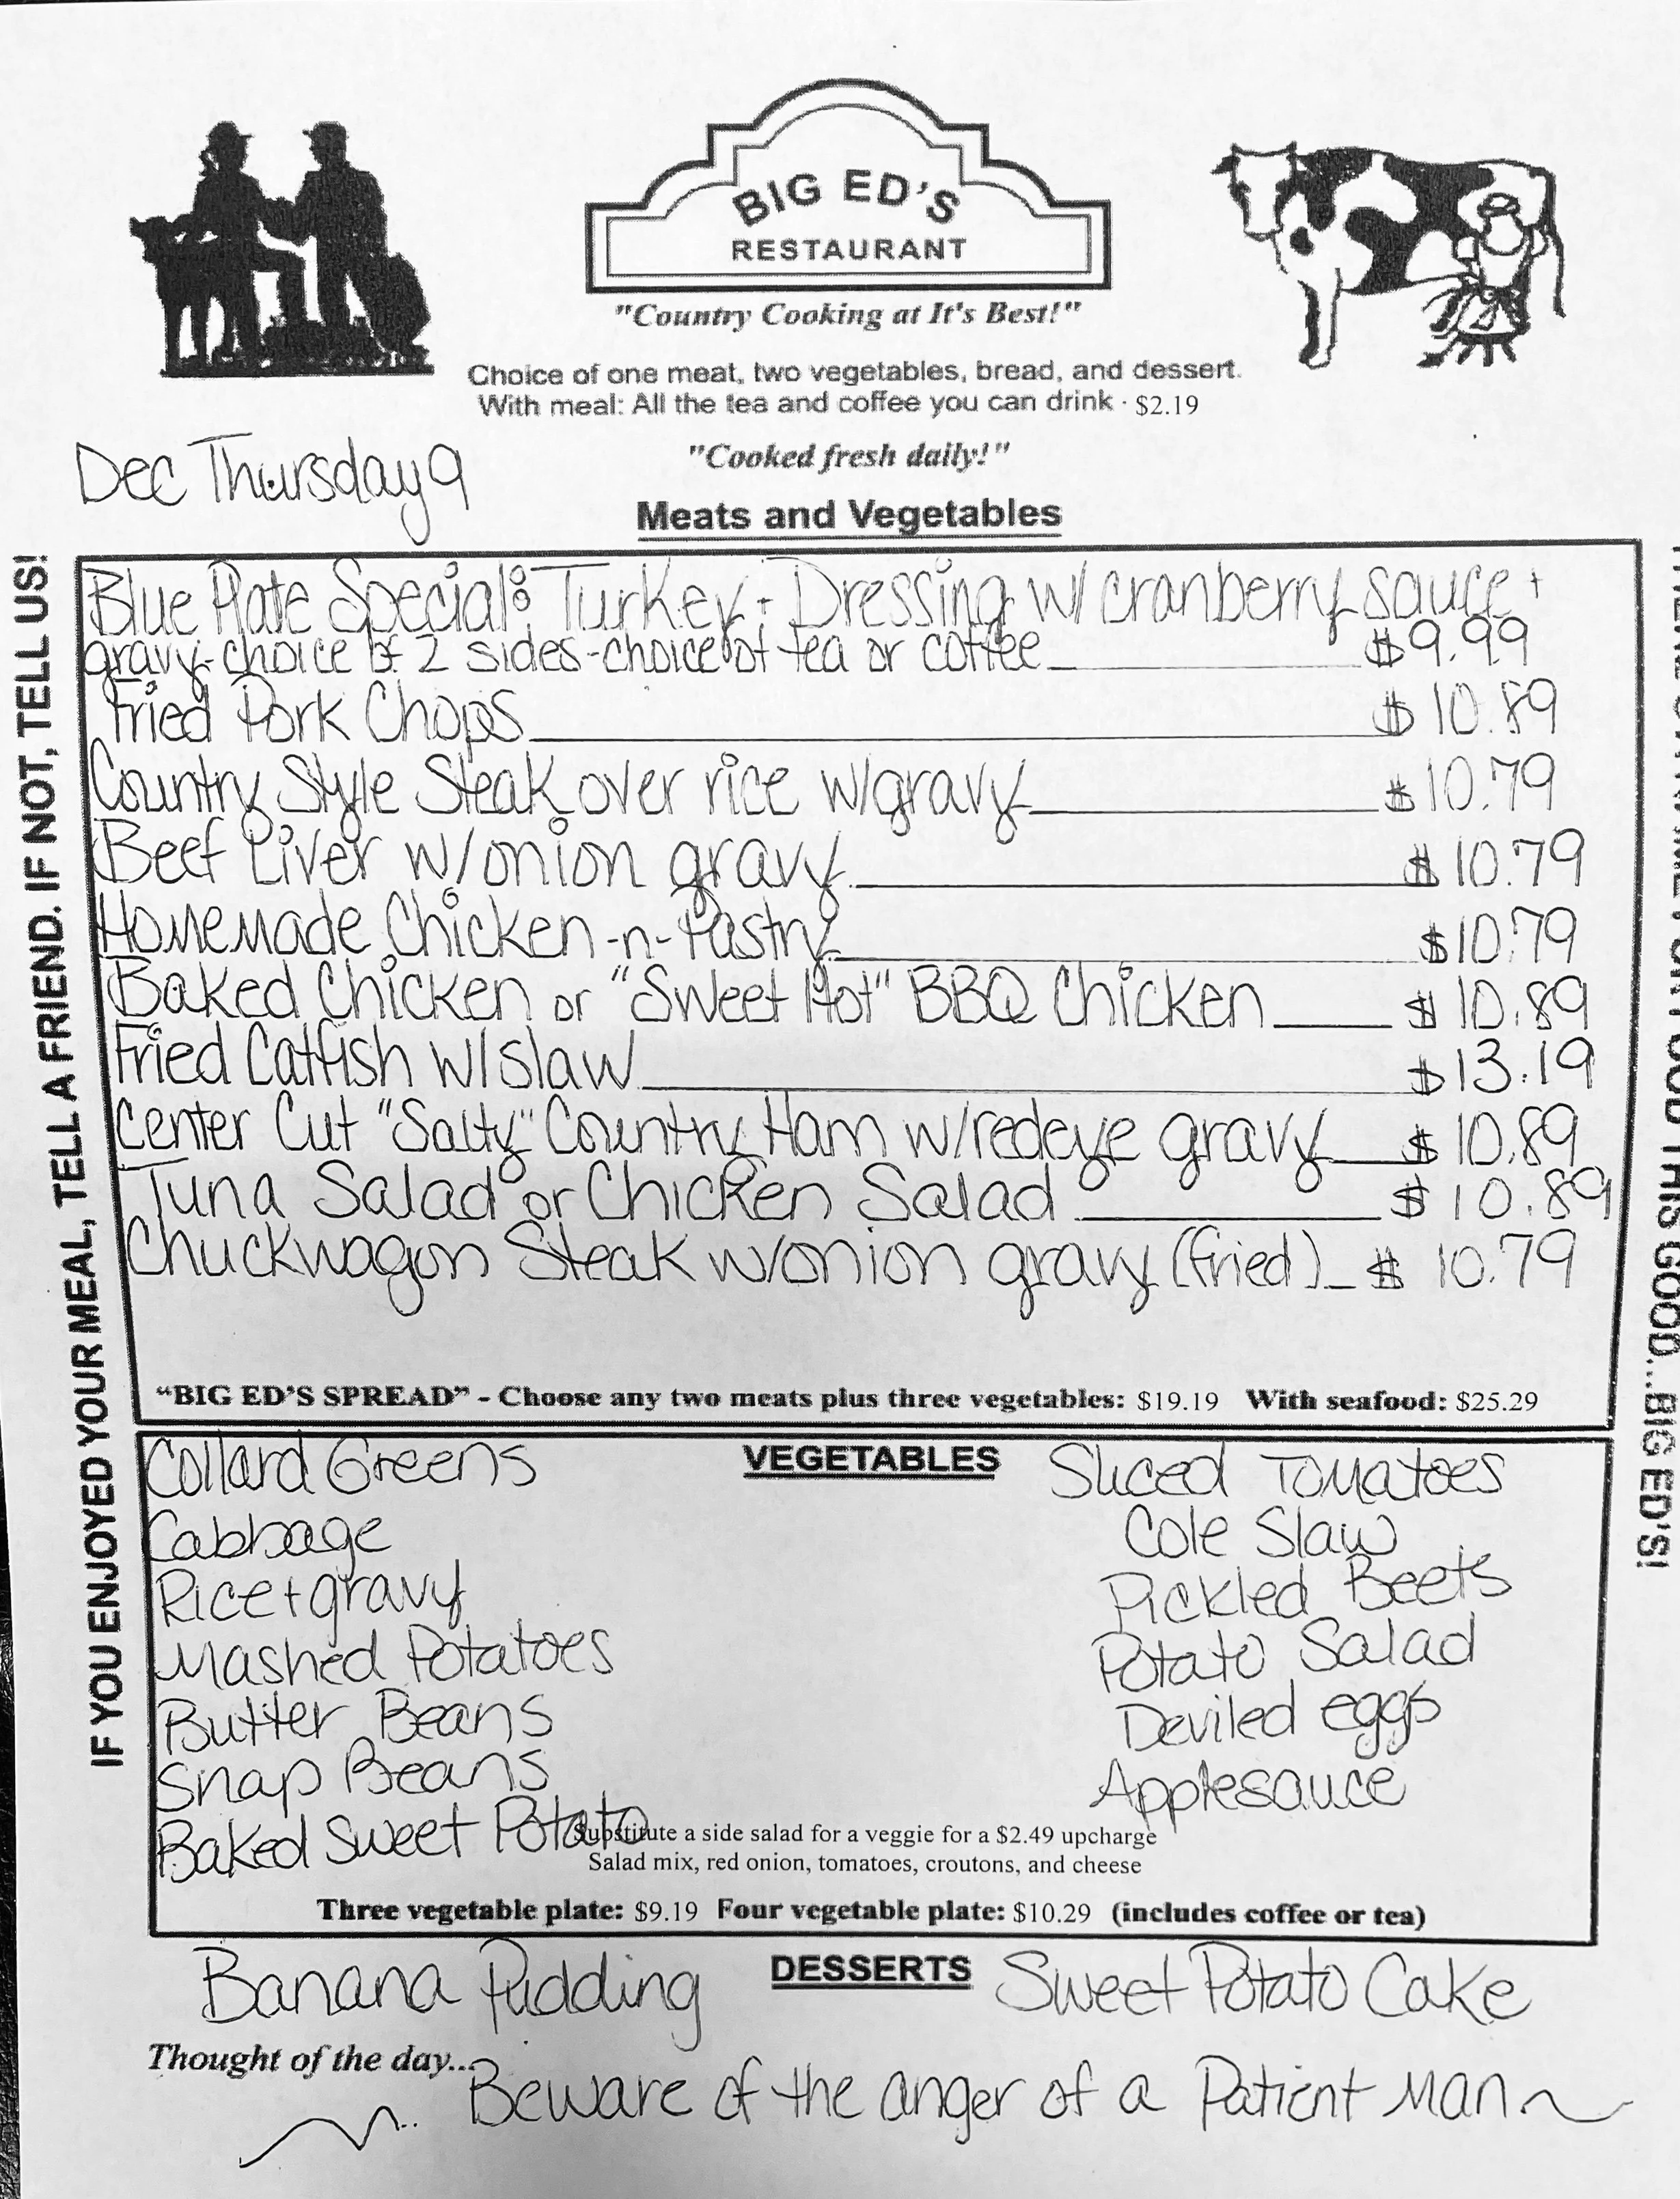 BIG ED'S
RESTAURANT
"Country Cooking at It's Best!"
Choice of one meat, two vegetables, bread, and dessert.
With meal: All the tea and coffee you can drink · $2.19
"Cooked fresh daily!"
Dec Thursday 9
Meats and Vegetables
Blue Plate Special: Turkey + Dressing w/ cranberry sauce +
gravy - choice of 2 sides - choice of tea or coffee $9.99
Fried Pork Chops $10.89
Country Style Steak over rice w/gravy $10.79
Beef Liver w/onion gravy $10.79
Homemade Chicken -n- Pastry $10.79
Baked Chicken or "Sweet Hot" BBQ Chicken $10.89
Fried Catfish w/slaw $13.19
Center Cut "Salty" Country Ham w/redeye gravy $10.89
Tuna Salad or Chicken Salad $10.89
Chuckwagon Steak w/onion gravy (fried) $10.79
"BIG ED'S SPREAD" - Choose any two meats plus three vegetables: $19.19 With seafood: $25.29
VEGETABLES
Collard Greens
Cabbage
Rice + gravy
Mashed Potatoes
Butter Beans
Snap Beans
Baked Sweet Potato
Sliced Tomatoes
Cole Slaw
Pickled Beets
Potato Salad
Deviled eggs
Applesauce
Substitute a side salad for a veggie for a $2.49 upcharge
Salad mix, red onion, tomatoes, croutons, and cheese
Three vegetable plate: $9.19 Four vegetable plate: $10.29 (includes coffee or tea)
DESSERTS
Banana Pudding
Sweet Potato Cake
Thought of the day...
Beware of the anger of a Patient Man
IF YOU ENJOYED YOUR MEAL, TELL A FRIEND. IF NOT, TELL US!
THIS GOOD...BIG ED'S!